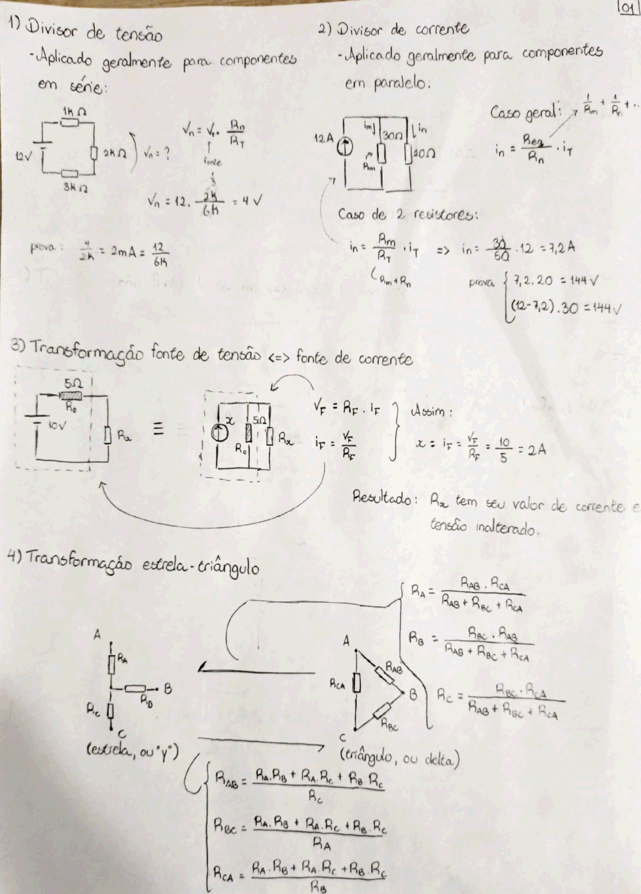 01
1) Divisor de tensão
- Aplicado geralmente para componentes
em série:
1KΩ
12V
2KΩ
3KΩ
Vn = ?
Vn = VF . Rn/RT
fonte
Vn = 12 . 2K/6K = 4 V
prova: 4/2K = 2mA = 12/6K
2) Divisor de corrente
- Aplicado geralmente para componentes
em paralelo.
12A
im
30Ω
in
Rm
20Ω
Caso geral: 1/Rm + 1/Rn + ..
in = Req/Rn . iT
Caso de 2 resistores:
in = Rm/RT . iT => in = 30/50 . 12 = 7,2A
Rm + Rn
prova
7,2 . 20 = 144V
(12-7,2) . 30 = 144V
3) Transformação fonte de tensão <=> fonte de corrente
5Ω
10V
Rx
≡
x
5Ω
Rx
VF = RF . iF
iF = VF/RF
Assim:
x = iF = VF/RF = 10/5 = 2A
Resultado: Rx tem seu valor de corrente e
tensão inalterado.
4) Transformação estrela-triângulo
A
RA
RB
B
RC
C
(estrela, ou "y")
A
RAB
RCA
B
RBC
C
(triângulo, ou delta)
RA = RAB . RCA / RAB + RBC + RCA
RB = RBC . RAB / RAB + RBC + RCA
RC = RBC . RCA / RAB + RBC + RCA
RAB = RA.RB + RA.RC + RB RC / RC
RBC = RA.RB + RA.RC + RB.RC / RA
RCA = RA.RB + RA.RC + RB.RC / RB